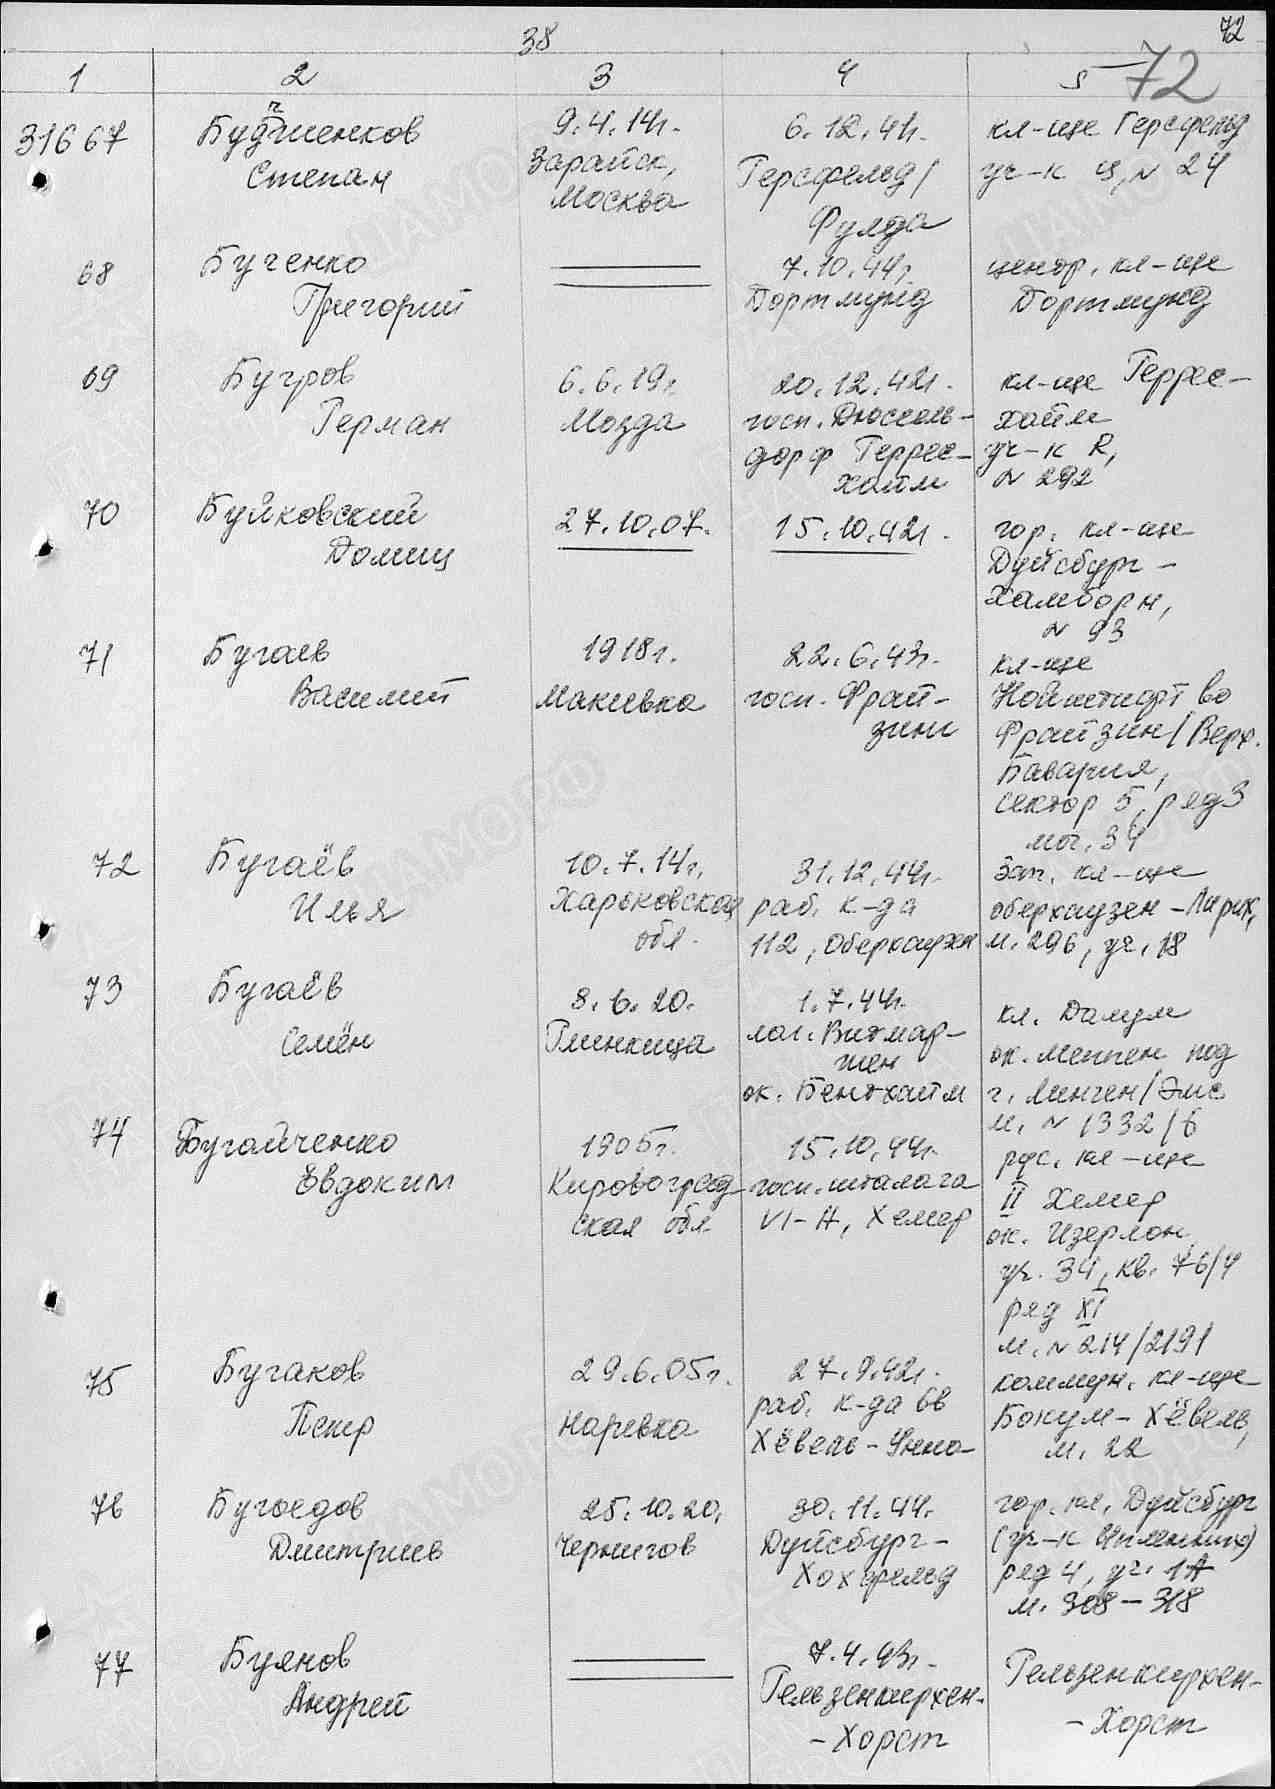 38
72
1 2 3 4 5 72
31667
Будченков
Степан
9.4.14г.
Зарайск,
Москва
6.12.41г.
Герсфельд/
Фулда
кл-ще Герсфельд
уч-к Ц, N 24
68
Бученко
Григорий
7.10.44г.
Дортмунд
центр. кл-ще
Дортмунд
69
Бугров
Герман
6.6.19г.
Мозда
20.12.42г.
госп. Дюссель-
дорф Геррес-
хайм
кл-ще Геррес-
хайм
уч-к R,
N 292
70
Буйковский
Домиц
27.10.07.
15.10.42г.
гор. кл-ще
Дуйсбург-
Хамборн,
N 93
71
Бугаев
Василий
1918г.
Макиевка
22.6.43г.
госп. Фрай-
зинг
кл-ще
Нойштифт во
Фрайзин/Верх.
Бавария,
сектор 5, ряд 3
мог. 34
72
Бугаёв
Илья
10.7.14г.
Харьковская
обл.
31.12.44г.
раб. к-да
112, Оберхаузен
Зап. кл-ще
Оберхаузен-Лирих,
м. 296, уч. 18
73
Бугаёв
Семён
8.6.20.
Глинкица
1.7.44г.
лаг. Витмар-
шен
ок. Бентхайм
кл. Далум
ок. Меппен под
г. Линген/Эмс
м. N 1332/6
74
Бугайченко
Евдоким
1905г.
Кировоград-
ская обл.
15.10.44г.
госп. шталага
VI-А, Хемер
рус. кл-ще
II Хемер
ок. Изерлон,
уч. 34, кв. 76/4
ряд XI
м. N 214/2191
75
Бугаков
Пекир
29.6.05г.
Наривка
27.9.42г.
раб. к-да 6в
Хёвель-Унна
коммун. кл-ще
Бокум-Хёвель,
м. 22
76
Бугоедов
Дмитриев
25.10.20.
Чернигов
30.11.44г.
Дуйсбург-
Хохфельд
гор. кл. Дуйсбург
ряд 4, уч. 1А
м. 308-318
77
Буянов
Андрей
7.4.43г.
Гельзенкирхен-
-Хорст
Гельзенкирхен-
-Хорст